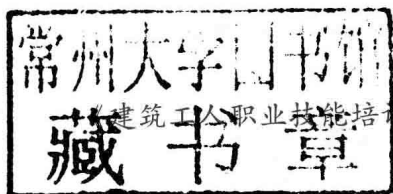 常州大学图书馆
建筑工人职业技能培
藏书章